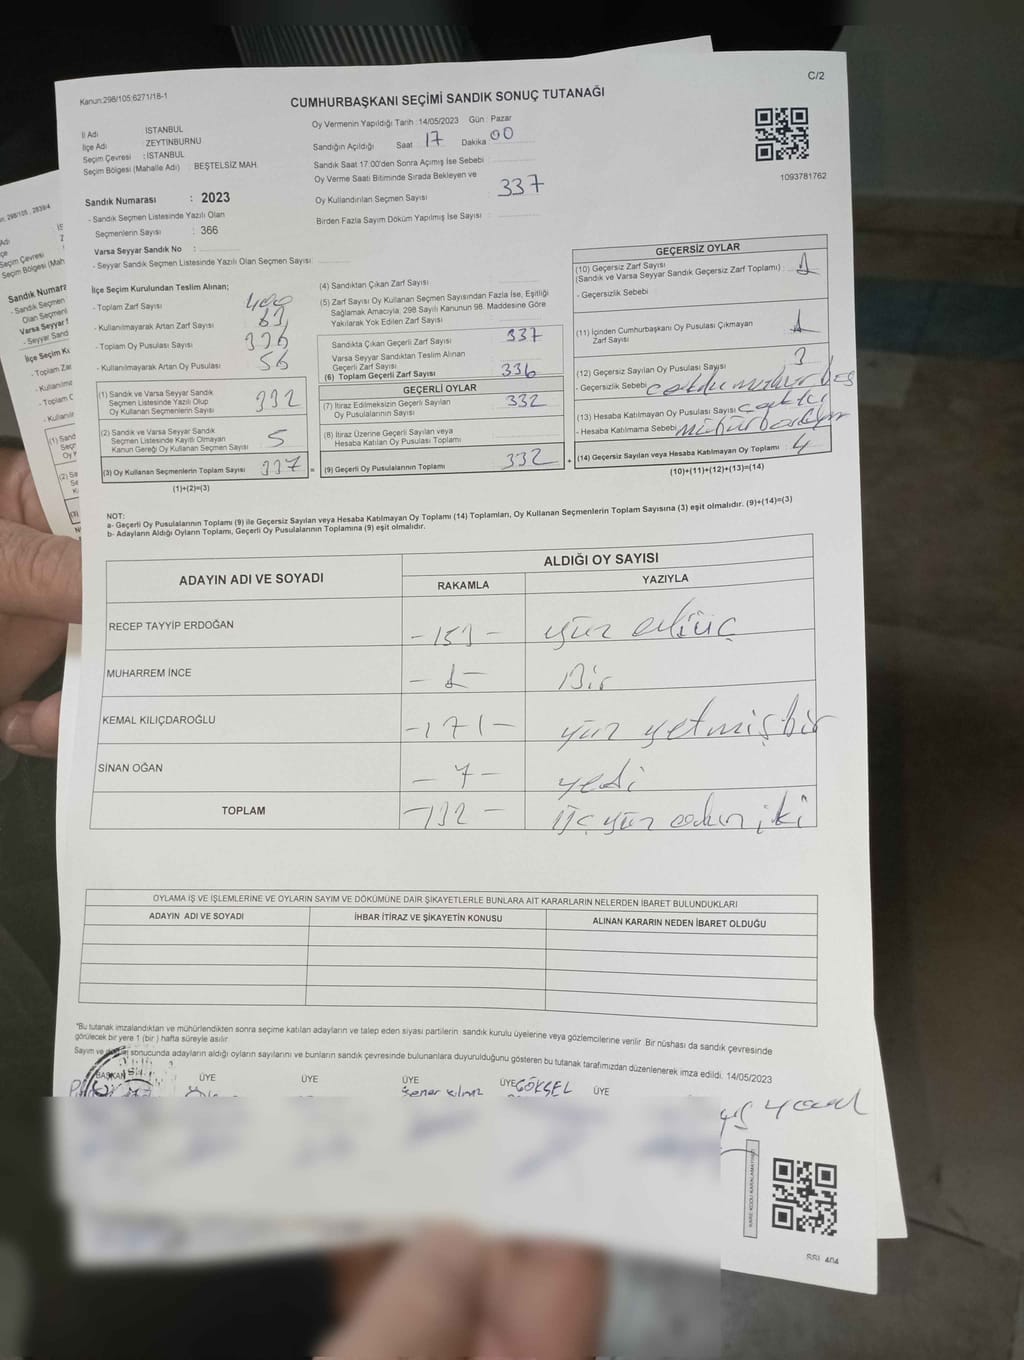 C/2
Kanun:298/105;6271/18-1
CUMHURBAŞKANI SEÇİMİ SANDIK SONUÇ TUTANAĞI
İl Adı İSTANBUL
İlçe Adı ZEYTİNBURNU
Seçim Çevresi : İSTANBUL
Seçim Bölgesi (Mahalle Adı) : BEŞTELSİZ MAH.
Sandık Numarası : 2023
- Sandık Seçmen Listesinde Yazılı Olan
Seçmenlerin Sayısı : 366
Varsa Seyyar Sandık No :
- Seyyar Sandık Seçmen Listesinde Yazılı Olan Seçmen Sayısı:
Oy Vermenin Yapıldığı Tarih :14/05/2023 Gün : Pazar
Sandığın Açıldığı Saat 17 Dakika: 00
Sandık Saat 17:00'den Sonra Açımış İse Sebebi
Oy Verme Saati Bitiminde Sırada Bekleyen ve
Oy Kullandırılan Seçmen Sayısı 337
Birden Fazla Sayım Döküm Yapılmış İse Sayısı :
1093781762
İlçe Seçim Kurulundan Teslim Alınan;
- Toplam Zarf Sayısı 400
- Kullanılmayarak Artan Zarf Sayısı
- Toplam Oy Pusulası Sayısı
- Kullanılmayarak Artan Oy Pusulası 56
(1) Sandık ve Varsa Seyyar Sandık
Seçmen Listesinde Yazılı Olup
Oy Kullanan Seçmenlerin Sayısı 332
(2) Sandık ve Varsa Seyyar Sandık
Seçmen Listesinde Kayıtlı Olmayan
Kanun Gereği Oy Kullanan Seçmen Sayısı 5
(3) Oy Kullanan Seçmenlerin Toplam Sayısı 337
(1)+(2)=(3)
(4) Sandıktan Çıkan Zarf Sayısı
(5) Zarf Sayısı Oy Kullanan Seçmen Sayısından Fazla İse, Eşitliği
Sağlamak Amacıyla; 298 Sayılı Kanunun 98. Maddesine Göre
Yakılarak Yok Edilen Zarf Sayısı
Sandıkta Çıkan Geçerli Zarf Sayısı 337
Varsa Seyyar Sandıktan Teslim Alınan
Geçerli Zarf Sayısı
(6) Toplam Geçerli Zarf Sayısı 336
GEÇERLİ OYLAR
(7) İtiraz Edilmeksizin Geçerli Sayılan
Oy Pusulalarının Sayısı 332
(8) İtiraz Üzerine Geçerli Sayılan veya
Hesaba Katılan Oy Pusulası Toplamı
(9) Geçerli Oy Pusulalarının Toplamı 332
GEÇERSİZ OYLAR
(10) Geçersiz Zarf Sayısı
(Sandık ve Varsa Seyyar Sandık Geçersiz Zarf Toplamı) 1
- Geçersizlik Sebebi
(11) İçinden Cumhurbaşkanı Oy Pusulası Çıkmayan
Zarf Sayısı 1
(12) Geçersiz Sayılan Oy Pusulası Sayısı 3
- Geçersizlik Sebebi
(13) Hesaba Katılmayan Oy Pusulası Sayısı
- Hesaba Katılmama Sebebi
(14) Geçersiz Sayılan veya Hesaba Katılmayan Oy Toplamı 4
(10)+(11)+(12)+(13)=(14)
NOT:
a- Geçerli Oy Pusulalarının Toplamı (9) ile Geçersiz Sayılan veya Hesaba Katılmayan Oy Toplamı (14) Toplamları, Oy Kullanan Seçmenlerin Toplam Sayısına (3) eşit olmalıdır. (9)+(14)=(3)
b- Adayların Aldığı Oyların Toplamı, Geçerli Oy Pusulalarının Toplamına (9) eşit olmalıdır.
ADAYIN ADI VE SOYADI ALDIĞI OY SAYISI
RAKAMLA YAZIYLA
RECEP TAYYİP ERDOĞAN - 153 - yüz elliüç
MUHARREM İNCE - 1 - Bir
KEMAL KILIÇDAROĞLU - 171 - yüz yetmişbir
SİNAN OĞAN - 7 - yedi
TOPLAM - 332 - üç yüz otuz iki
OYLAMA İŞ VE İŞLEMLERİNE VE OYLARIN SAYIM VE DÖKÜMÜNE DAİR ŞİKAYETLERLE BUNLARA AİT KARARLARIN NELERDEN İBARET BULUNDUKLARI
ADAYIN ADI VE SOYADI İHBAR İTİRAZ VE ŞİKAYETİN KONUSU ALINAN KARARIN NEDEN İBARET OLDUĞU
*Bu tutanak imzalandıktan ve mühürlendikten sonra seçime katılan adayların ve talep eden siyasi partilerin sandık kurulu üyelerine veya gözlemcilerine verilir. Bir nüshası da sandık çevresinde
görülecek bir yere 1 (bir) hafta süreyle asılır
Sayım ve sonucunda adayların aldığı oyların sayılarını ve bunların sandık çevresinde bulunanlara duyurulduğunu gösteren bu tutanak tarafımızdan düzenlenerek imza edildi. 14/05/2023
BAŞKAN ÜYE ÜYE ÜYE ÜYE ÜYE
Şener Yılmaz GÖKSEL